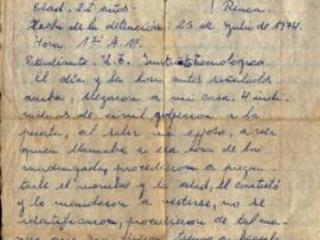 Edad. 22 años. | Renca.
Fecha de la detención: 25 de Julio de 1974.
Hora 1ª A.M.
Estudiante U.T. Instituto Tecnológico.
El día y la hora antes señalados
arriba, llegaron a mi casa. 4 indi-
viduos de civil golpearon a la
puerta, al salir mi esposo, a ver
quien llamaba a esa hora de la
madrugada, procedieron a pregun-
tarle el nombre y la edad, El contestó
y lo mandaron a vestirse, no se
identificaron, procedieron de tal ma-